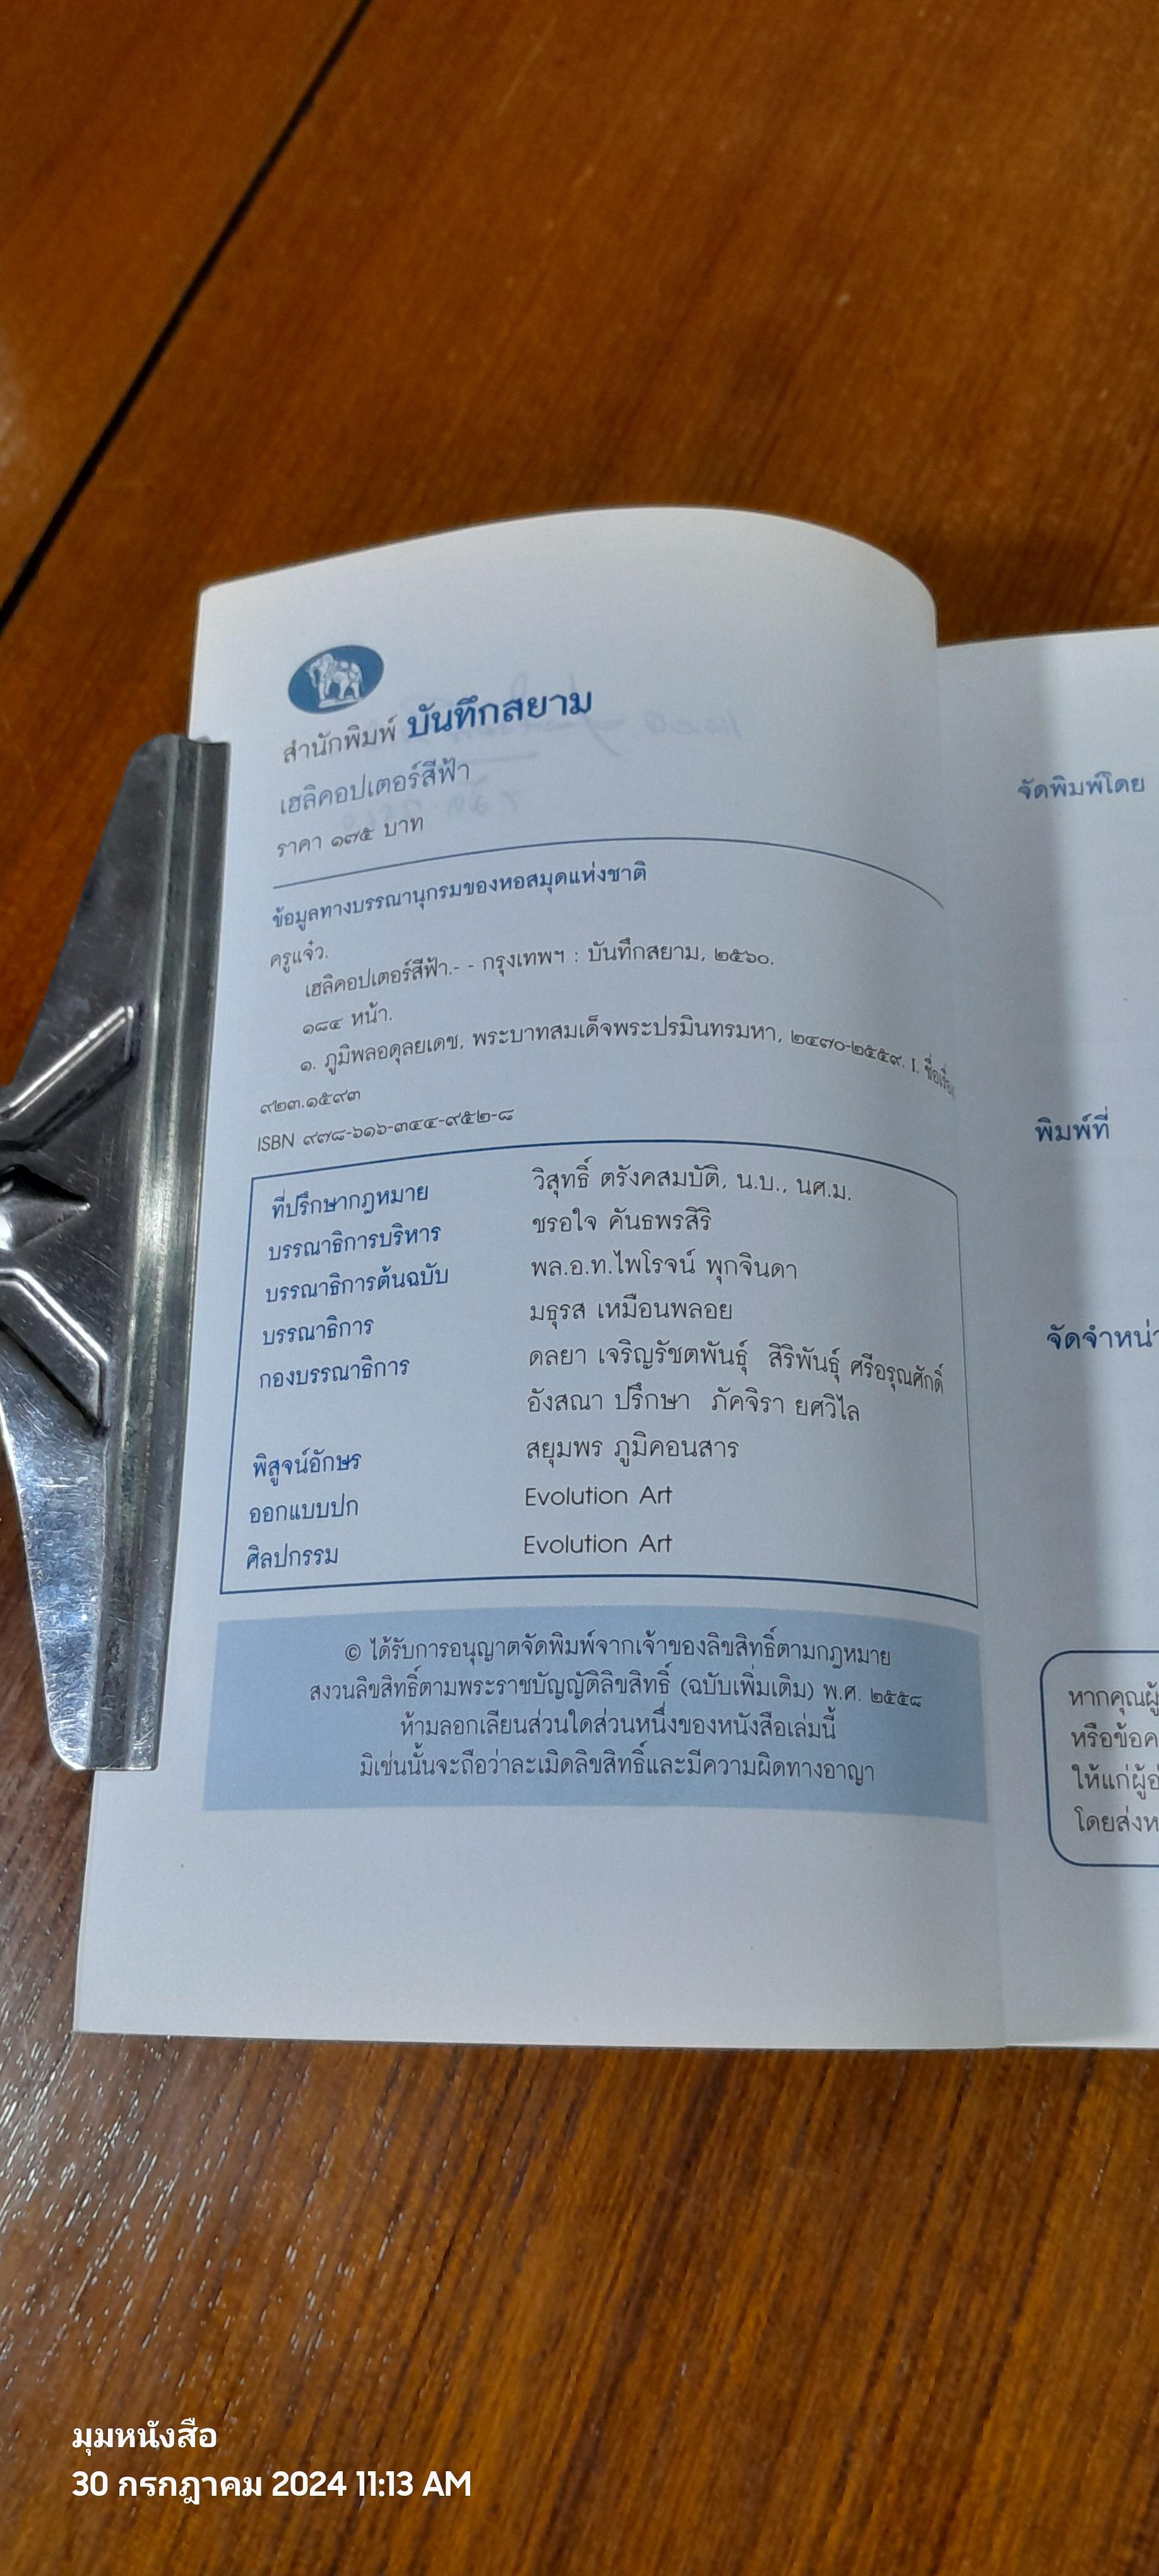 สำนักพิมพ์ บันทึกสยาม
เฮลิคอปเตอร์สีฟ้า
ราคา ๑๗๕ บาท
ข้อมูลทางบรรณานุกรมของหอสมุดแห่งชาติ
ครูแจ๋ว.
เฮลิคอปเตอร์สีฟ้า.- - กรุงเทพฯ : บันทึกสยาม, ๒๕๖๐.
๑๘๔ หน้า.
๑. ภูมิพลอดุลยเดช, พระบาทสมเด็จพระปรมินทรมหา, ๒๔๗๐-๒๕๕๙. I. ชื่อเรื่อง
๙๒๓.๑๕๙๓
ISBN ๙๗๘-๖๑๖-๓๔๔-๙๕๒-๘
ที่ปรึกษากฎหมาย วิสุทธิ์ ตรังคสมบัติ, น.บ., นศ.ม.
บรรณาธิการบริหาร ชรอใจ คันธพรสิริ
บรรณาธิการต้นฉบับ พล.อ.ท.ไพโรจน์ พุกจินดา
บรรณาธิการ มธุรส เหมือนพลอย
กองบรรณาธิการ ดลยา เจริญรัชตพันธุ์ สิริพันธุ์ ศรีอรุณศักดิ์
อังสณา ปรึกษา ภัคจิรา ยศวิไล
พิสูจน์อักษร สยุมพร ภูมิคอนสาร
ออกแบบปก Evolution Art
ศิลปกรรม Evolution Art
© ได้รับการอนุญาตจัดพิมพ์จากเจ้าของลิขสิทธิ์ตามกฎหมาย
สงวนลิขสิทธิ์ตามพระราชบัญญัติลิขสิทธิ์ (ฉบับเพิ่มเติม) พ.ศ. ๒๕๕๘
ห้ามลอกเลียนส่วนใดส่วนหนึ่งของหนังสือเล่มนี้
มิเช่นนั้นจะถือว่าละเมิดลิขสิทธิ์และมีความผิดทางอาญา
จัดพิมพ์โดย
พิมพ์ที่
จัดจำหน่
หากคุณผู้
หรือข้อค
ให้แก่ผู้อ่
โดยส่งห
มุมหนังสือ
30 กรกฎาคม 2024 11:13 AM